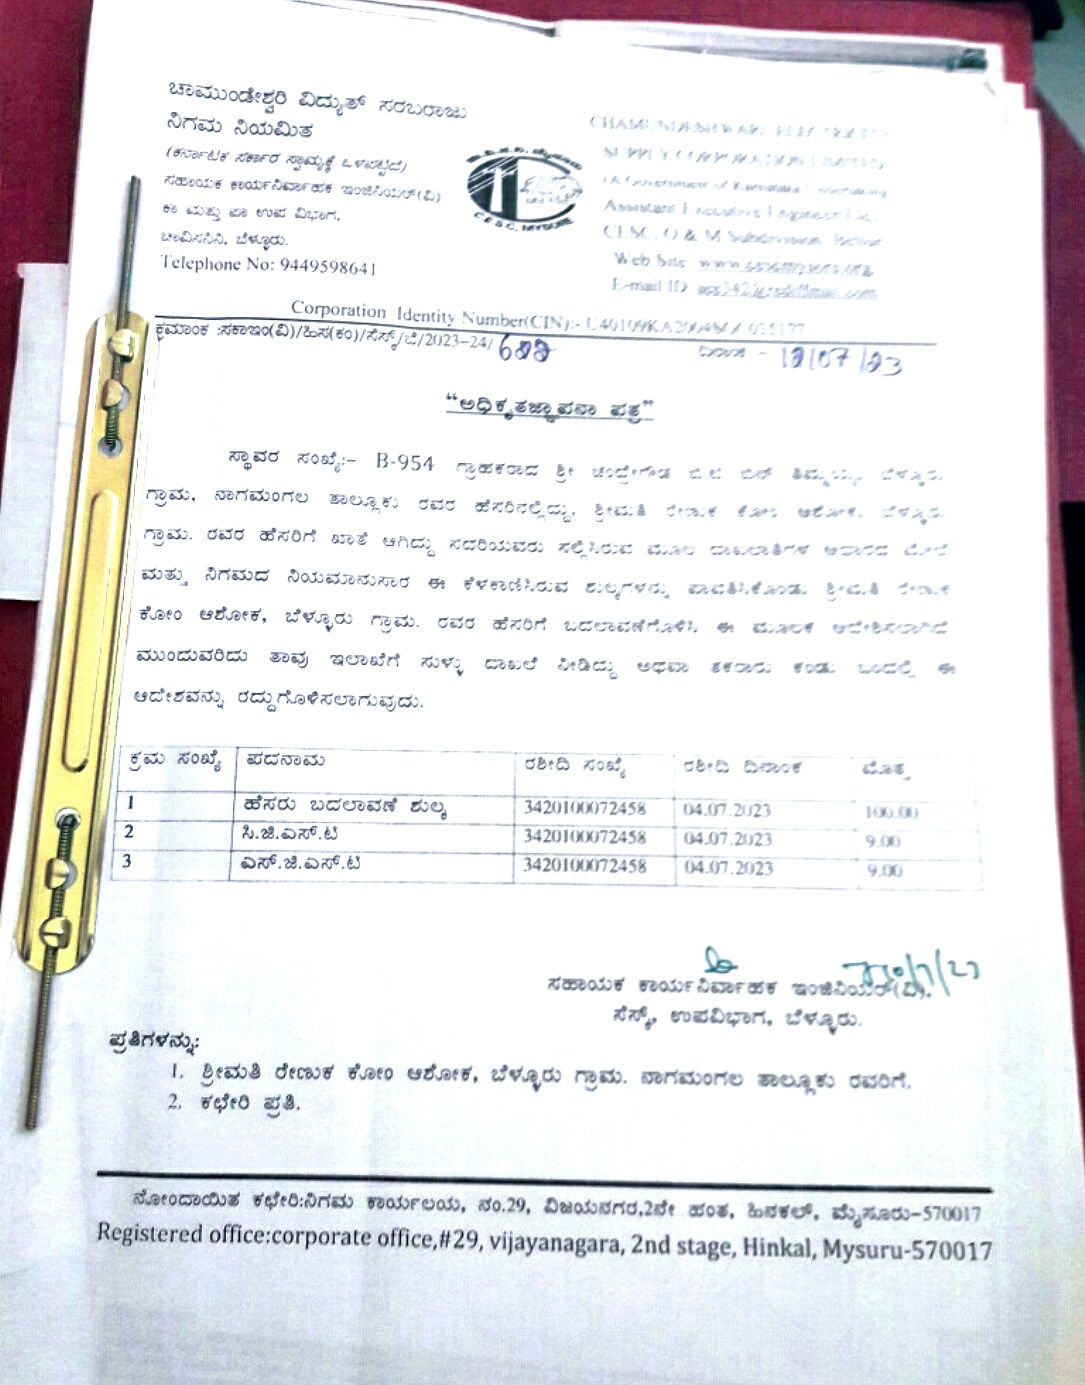 ಚಾಮುಂಡೇಶ್ವರಿ ವಿದ್ಯುತ್ ಸರಬರಾಜು
ನಿಗಮ ನಿಯಮಿತ
(ಕರ್ನಾಟಕ ಸರ್ಕಾರ ಸ್ವಾಮ್ಯಕ್ಕೆ ಒಳಪಟ್ಟಿದೆ)
ಸಹಾಯಕ ಕಾರ್ಯನಿರ್ವಾಹಕ ಇಂಜಿನಿಯರ್(ವಿ)
ಕಾ ಮತ್ತು ಪಾ ಉಪ ವಿಭಾಗ,
ಚಾವಿಸನಿನಿ, ಬೆಳ್ಳೂರು.
Telephone No: 9449598641
C.E.S.C. MYSORE
CHAMUNDESHWARI ELECTRICITY
SUPPLY CORPORATION LIMITED
(A Government of Karnataka Undertaking
Assistant Executive Engineer
CESC, O & M Subdivision, Bellur
Web Site
E-mail ID
Corporation Identity Number(CIN):-
ಕ್ರಮಾಂಕ :ಸಕಾಇಂ(ವಿ)/ಹಿಸ(ಕಂ)/ಸೆಸ್ಕ್/ಬೆ/2023-24/
ದಿನಾಂಕ -
“ಅಧಿಕೃತಜ್ಞಾಪನಾ ಪತ್ರ”
ಸ್ಥಾವರ ಸಂಖ್ಯೆ:- B-954 ಗ್ರಾಹಕರಾದ ಶ್ರೀ ಚಂದ್ರೇಗೌಡ ಬಿನ್ ತಿಮ್ಮಯ್ಯ, ಬೆಳ್ಳೂರು
ಗ್ರಾಮ, ನಾಗಮಂಗಲ ತಾಲ್ಲೂಕು ರವರ ಹೆಸರಿನಲ್ಲಿದ್ದು, ಶ್ರೀಮತಿ ರೇಣುಕ ಕೋಂ ಆಶೋಕ, ಬೆಳ್ಳೂರು
ಗ್ರಾಮ. ರವರ ಹೆಸರಿಗೆ ಖಾತೆ ಆಗಿದ್ದು ಸದರಿಯವರು ಸಲ್ಲಿಸಿರುವ ಮೂಲ ದಾಖಲಾತಿಗಳ ಆಧಾರದ ಮೇಲೆ
ಮತ್ತು ನಿಗಮದ ನಿಯಮಾನುಸಾರ ಈ ಕೆಳಕಾಣಿಸಿರುವ ಶುಲ್ಕಗಳನ್ನು ಪಾವತಿಸಿಕೊಂಡು ಶ್ರೀಮತಿ ರೇಣುಕ
ಕೋಂ ಆಶೋಕ, ಬೆಳ್ಳೂರು ಗ್ರಾಮ. ರವರ ಹೆಸರಿಗೆ ಬದಲಾವಣೆಗೊಳಿಸಿ ಈ ಮೂಲಕ ಆದೇಶಿಸಲಾಗಿದೆ
ಮುಂದುವರಿದು ತಾವು ಇಲಾಖೆಗೆ ಸುಳ್ಳು ದಾಖಲೆ ನೀಡಿದ್ದು ಅಥವಾ ತಕರಾರು ಕಂಡು ಬಂದಲ್ಲಿ ಈ
ಆದೇಶವನ್ನು ರದ್ದುಗೊಳಿಸಲಾಗುವುದು.
ಕ್ರಮ ಸಂಖ್ಯೆ ಪದನಾಮ ರಶೀದಿ ಸಂಖ್ಯೆ ರಶೀದಿ ದಿನಾಂಕ ಮೊತ್ತ
1 ಹೆಸರು ಬದಲಾವಣೆ ಶುಲ್ಕ 3420100072458 04.07.2023 100.00
2 ಸಿ.ಜಿ.ಎಸ್.ಟಿ 3420100072458 04.07.2023 9.00
3 ಎಸ್.ಜಿ.ಎಸ್.ಟಿ 3420100072458 04.07.2023 9.00
ಸಹಾಯಕ ಕಾರ್ಯನಿರ್ವಾಹಕ ಇಂಜಿನಿಯರ್(ವಿ),
ಸೆಸ್ಕ್, ಉಪವಿಭಾಗ, ಬೆಳ್ಳೂರು.
ಪ್ರತಿಗಳನ್ನು:
1. ಶ್ರೀಮತಿ ರೇಣುಕ ಕೋಂ ಆಶೋಕ, ಬೆಳ್ಳೂರು ಗ್ರಾಮ. ನಾಗಮಂಗಲ ತಾಲ್ಲೂಕು ರವರಿಗೆ.
2. ಕಛೇರಿ ಪ್ರತಿ.
ನೋಂದಾಯಿತ ಕಛೇರಿ:ನಿಗಮ ಕಾರ್ಯಲಯ, ನಂ.29, ವಿಜಯನಗರ,2ನೇ ಹಂತ, ಹಿನಕಲ್, ಮೈಸೂರು-570017
Registered office:corporate office,#29, vijayanagara, 2nd stage, Hinkal, Mysuru-570017